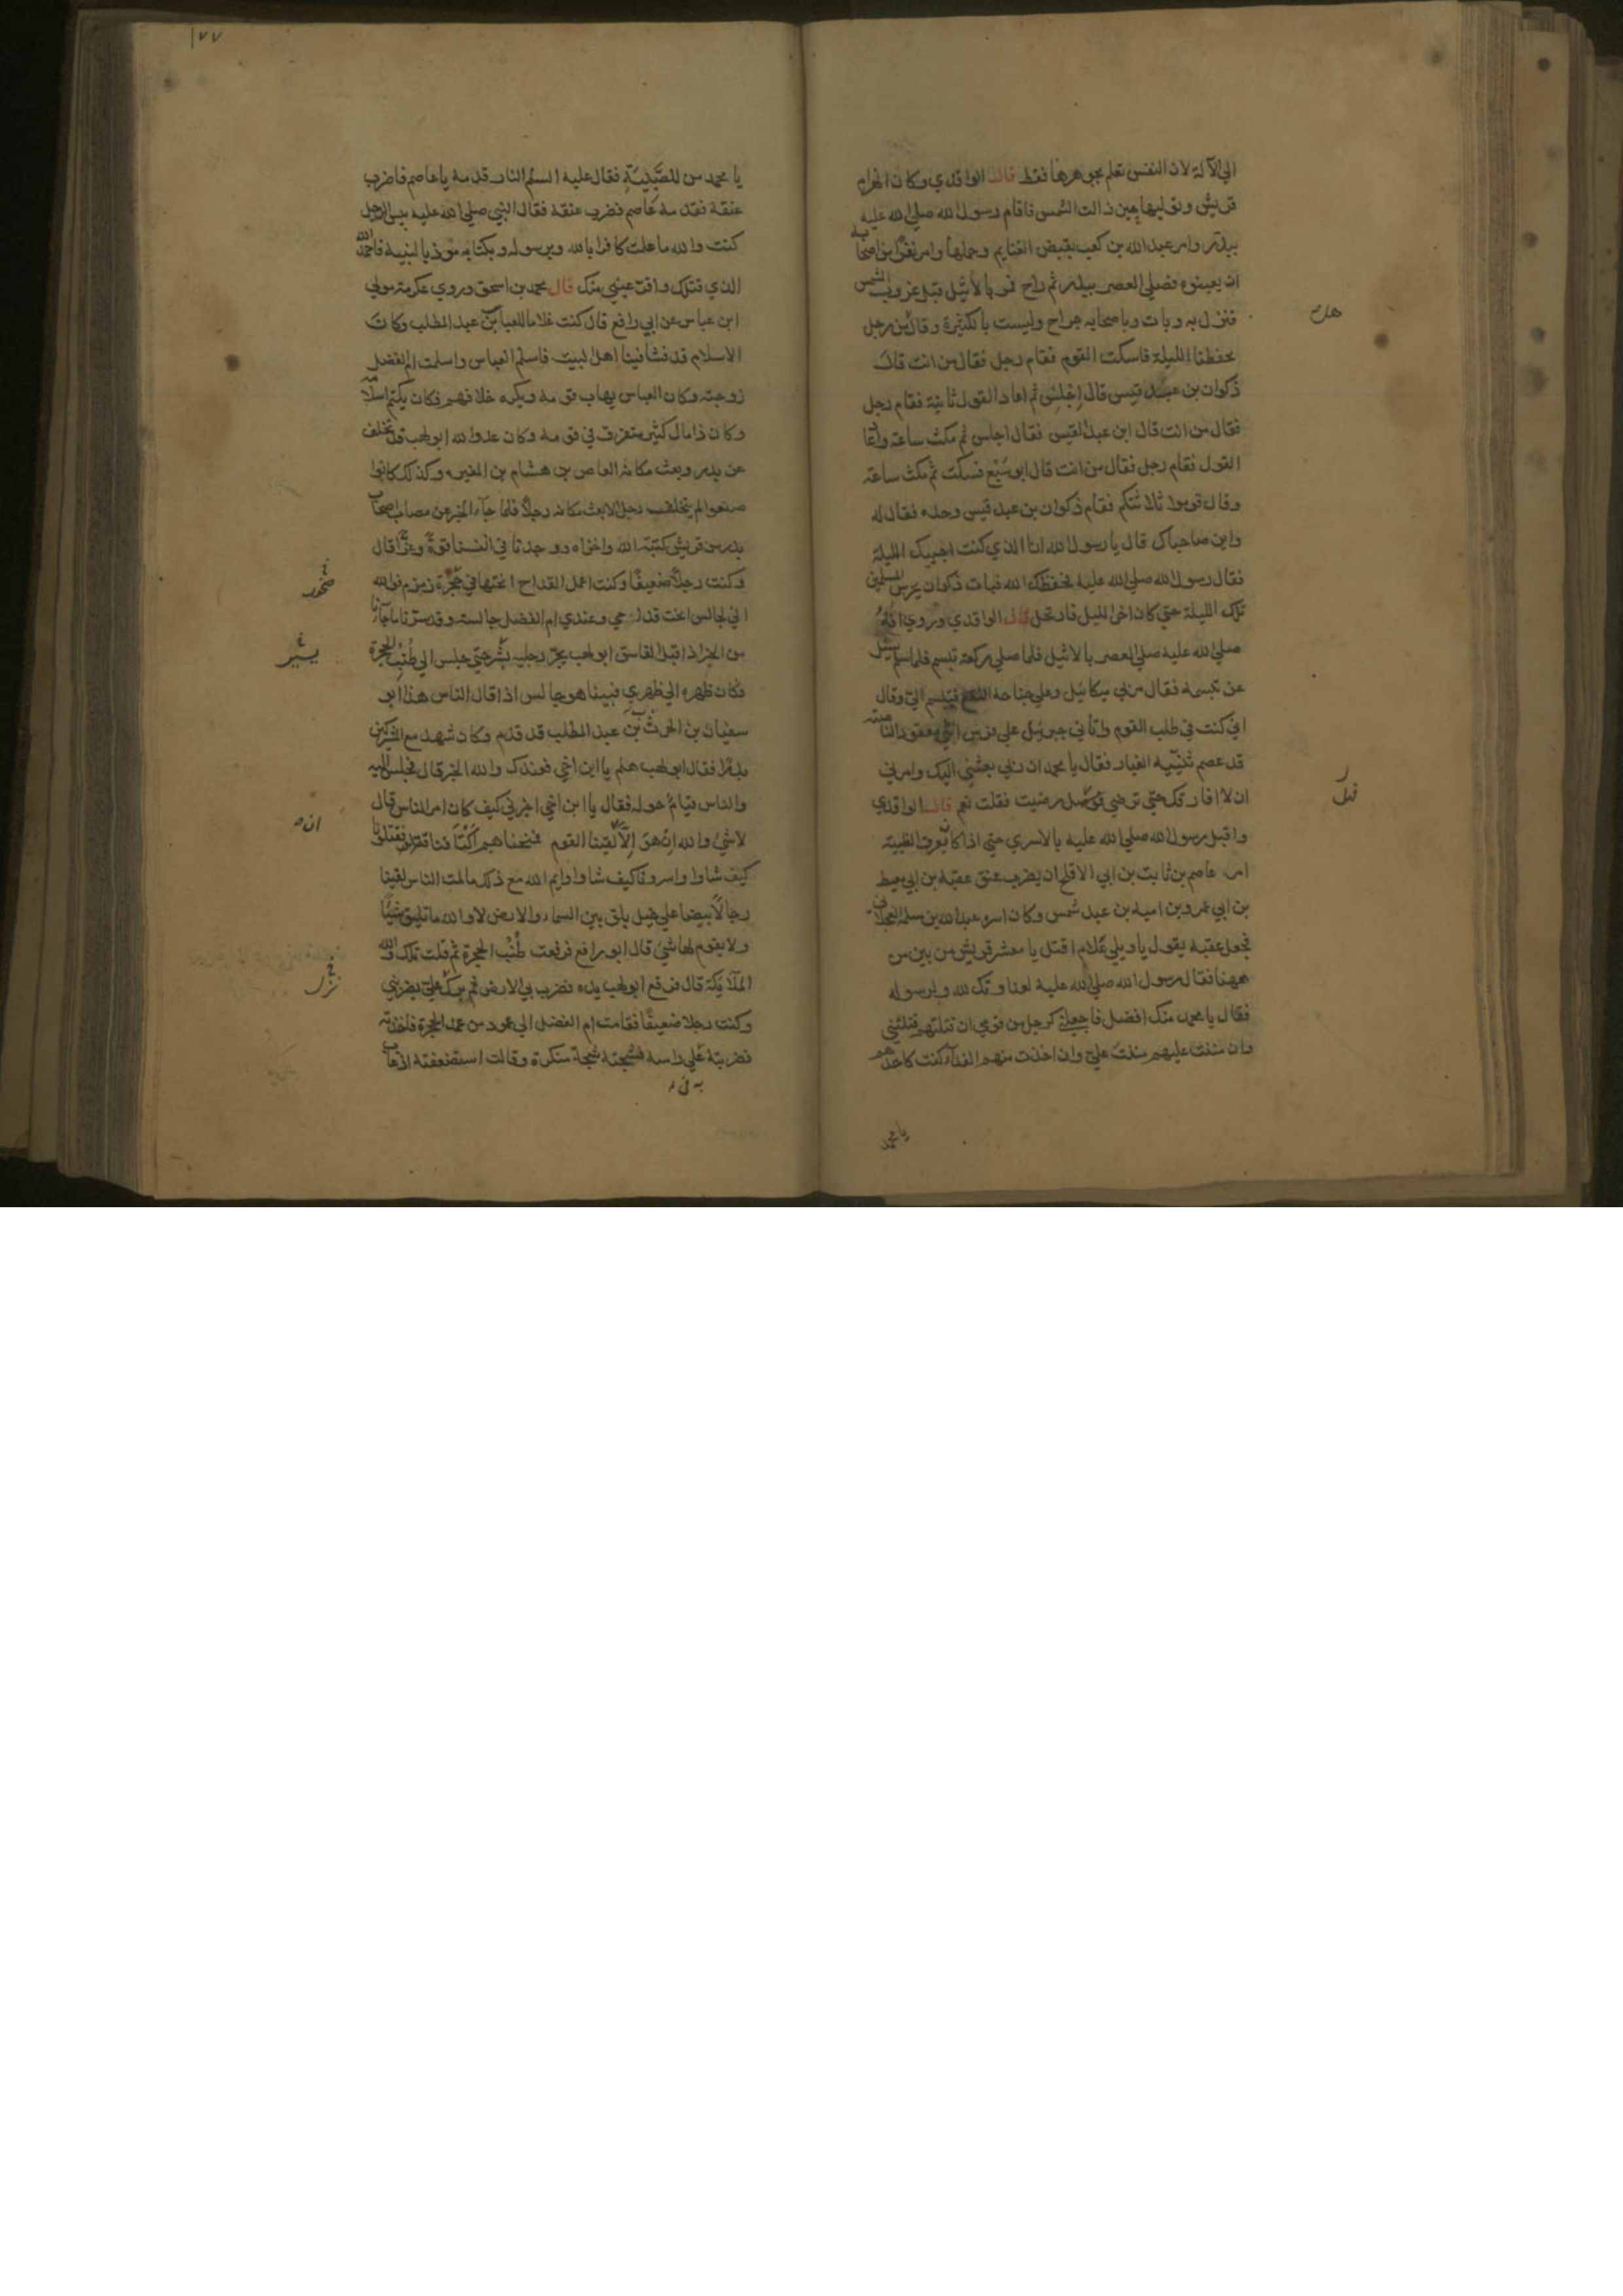 الي الآلة لان النفس تعلم بجوهرها فقط قال الواقدي وكان انهزام
قريش وتوليها حين زالت الشمس فاقام رسول الله صلي الله عليه
ببدر وامر عبد الله بن كعب بقبض الغنايم وحملها وامر نفرا من اصحابه
ان يعينوه فصلي العصر ببدر ثم راح فمر بالاثيل قبل غروب الشمس
فنزل به وبات وباصحابه جراح وليست بالكثيرة وقال من رجل
يحفظنا الليلة فاسكت القوم فقام رجل فقال من انت قال
ذكوان بن عبد قيس قال اجلس ثم اعاد القول ثانية فقام رجل
فقال من انت قال ابن عبد القيس فقال اجلس ثم مكث ساعة واعا
القول فقام رجل فقال من انت قال ابو سبع فسكت ثم مكث ساعة
وقال قوموا ثلاثتكم فقام ذكوان بن عبد قيس وحده فقال له
واين صاحباك قال يا رسول الله انا الذي كنت اجيبك الليلة
فقال رسول الله صلي الله عليه فحفظك الله فبات ذكوان يحرس المسلمين
تلك الليلة حتي كان اخر الليل فارتحل قال الواقدي وروي انه
صلي الله عليه صلي العصر بالاثيل فلما صلي ركعة تبسم فلما سلم سئل
عن تبسمه فقال مر بي ميكائيل وعلي جناحه النقع فتبسم الي وقال
اني كنت في طلب القوم واتاني جبرئيل علي فرس انثي معقود الناصية
قد عصم ثنيتيه الغبار فقال يا محمد ان ربي بعثني اليك وامرني
ان لا افارقك حتي ترضي فهل رضيت فقلت نعم قال الواقدي
واقبل رسول الله صلي الله عليه بالاسري حتي اذا كان بعرق الظبية
امر عاصم بن ثابت بن ابي الاقلح ان يضرب عنق عقبة بن ابي معيط
بن ابي عمرو بن امية بن عبد شمس وكان اسره عبد الله بن سلمة العجلاني
فجعل عقبة يقول يا ويلي علام اقتل يا معشر قريش من بين من
ههنا فقال رسول الله صلي الله عليه لعداوتك لله ولرسوله
فقال يا محمد منك افضل فاجعلني كرجل من قومي ان قتلتهم قتلتني
وان مننت عليهم مننت علي وان اخذت منهم الفداء كنت كاحدهم
يا محمد
١٧٧
يا محمد من للصبية فقال عليه السلم النار قدمه يا عاصم فاضرب
عنقه فقدمه عاصم فضرب عنقه فقال النبي صلي الله عليه بيس الرجل
كنت والله ما علمت كافرا بالله وبرسوله وبكتابه موذيا لنبيه فاحمد الله
الذي قتلك واقر عيني منك قال محمد بن اسحق وروي عكرمة مولي
ابن عباس عن ابي رافع قال كنت غلاما للعباس بن عبد المطلب وكان
الاسلام قد فشا فينا اهل البيت فاسلم العباس واسلمت ام الفضل
زوجته وكان العباس يهاب قومه ويكره خلافهم فكان يكتم اسلامه
وكان ذا مال كثير متفرق في قومه وكان عدو الله ابو لهب قد تخلف
عن بدر وبعث مكانه العاص بن هشام بن المغيره وكذلك كانوا
صنعوا لم يتخلف رجل الا بعث مكانه رجلا فلما جاء الخبر عن مصاب اصحاب
بدر من قريش كبته الله واخزاه ووجدنا في انفسنا قوة وعزا قال
وكنت رجلا ضعيفا وكنت اعمل القداح انحتها في حجرة زمزم فوالله
اني لجالس انحت قداحي وعندي ام الفضل جالسة وقد سرنا ما جاءنا
من الخبر اذ اقبل الفاسق ابو لهب يجر رجليه بشر حتي جلس الي طنب الحجرة
فكان ظهره الي ظهري فبينا هو جالس اذ قال الناس هذا ابو
سفيان بن الحرث بن عبد المطلب قد قدم وكان شهد مع المشركين
بدرا فقال ابو لهب هلم يا ابن اخي فعندك والله الخبر قال فجلس اليه
والناس قيام حوله فقال يا ابن اخي اخبرني كيف كان امر الناس قال
لا شئ والله ان هو الا لقينا القوم فمنحناهم اكتافنا فقتلونا
كيف شاوا واسرونا كيف شاوا وايم الله مع ذلك ما لمت الناس لقينا
رجالا بيضا علي خيل بلق بين السماء والارض لا والله ما تليق شيئا
ولا يقوم لها شئ قال ابو رافع فرفعت طنب الحجرة ثم قلت تلك والله
الملايكة قال فرفع ابو لهب يده فضرب بي الارض ثم برك علي يضربني
وكنت رجلا ضعيفا فقامت ام الفضل الي عمود من عمد الحجرة فاخذته
فضربته علي راسه فشجته شجة منكرة وقالت استضعفته اذ غاب